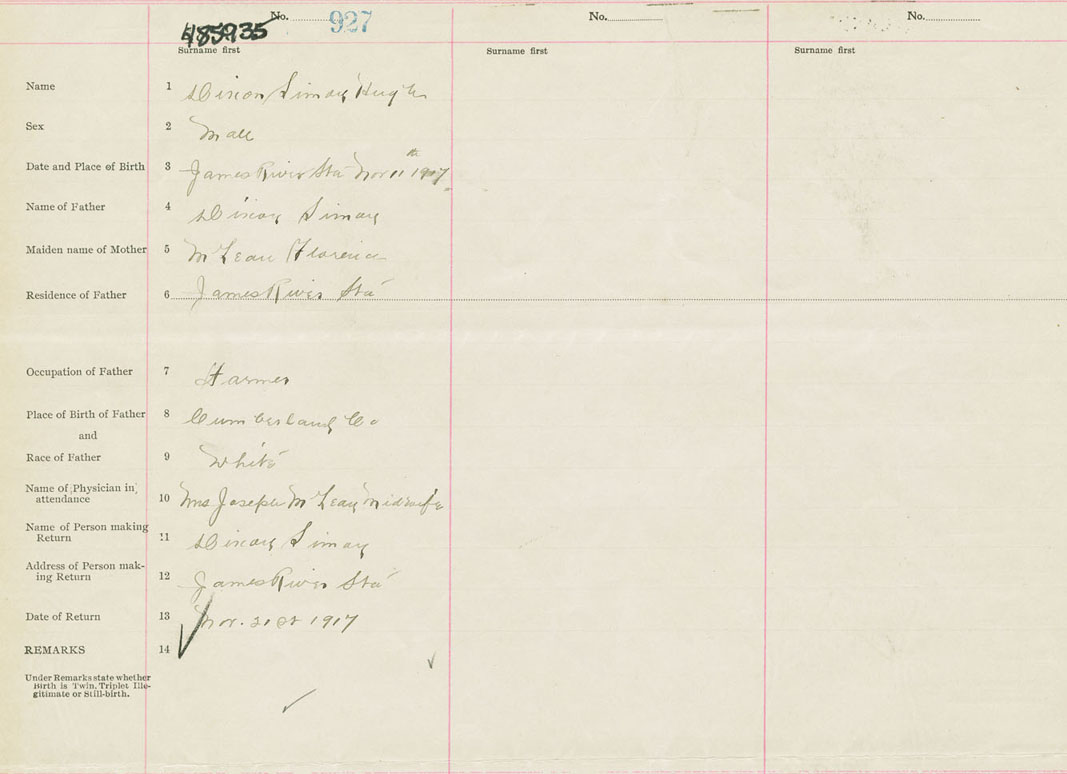 No. 927 No. No.
485935
Surname first Surname first Surname first
Name 1 Dixon Simon Hugh
Sex 2 Male
Date and Place of Birth 3 James River Sta Nov 11th 1917
Name of Father 4 Dixon Simon
Maiden name of Mother 5 McLean Florence
Residence of Father 6 James River Sta
Occupation of Father 7 Farmer
Place of Birth of Father 8 Cumberland Co
and
Race of Father 9 White
Name of Physician in
attendance 10 Mrs Joseph McLean Midwife
Name of Person making
Return 11 Dixon Simon
Address of Person mak-
ing Return 12 James River Sta
Date of Return 13 Nov. 21st 1917
REMARKS 14
Under Remarks state whether
Birth is Twin, Triplet Ille-
gitimate or Still-birth.